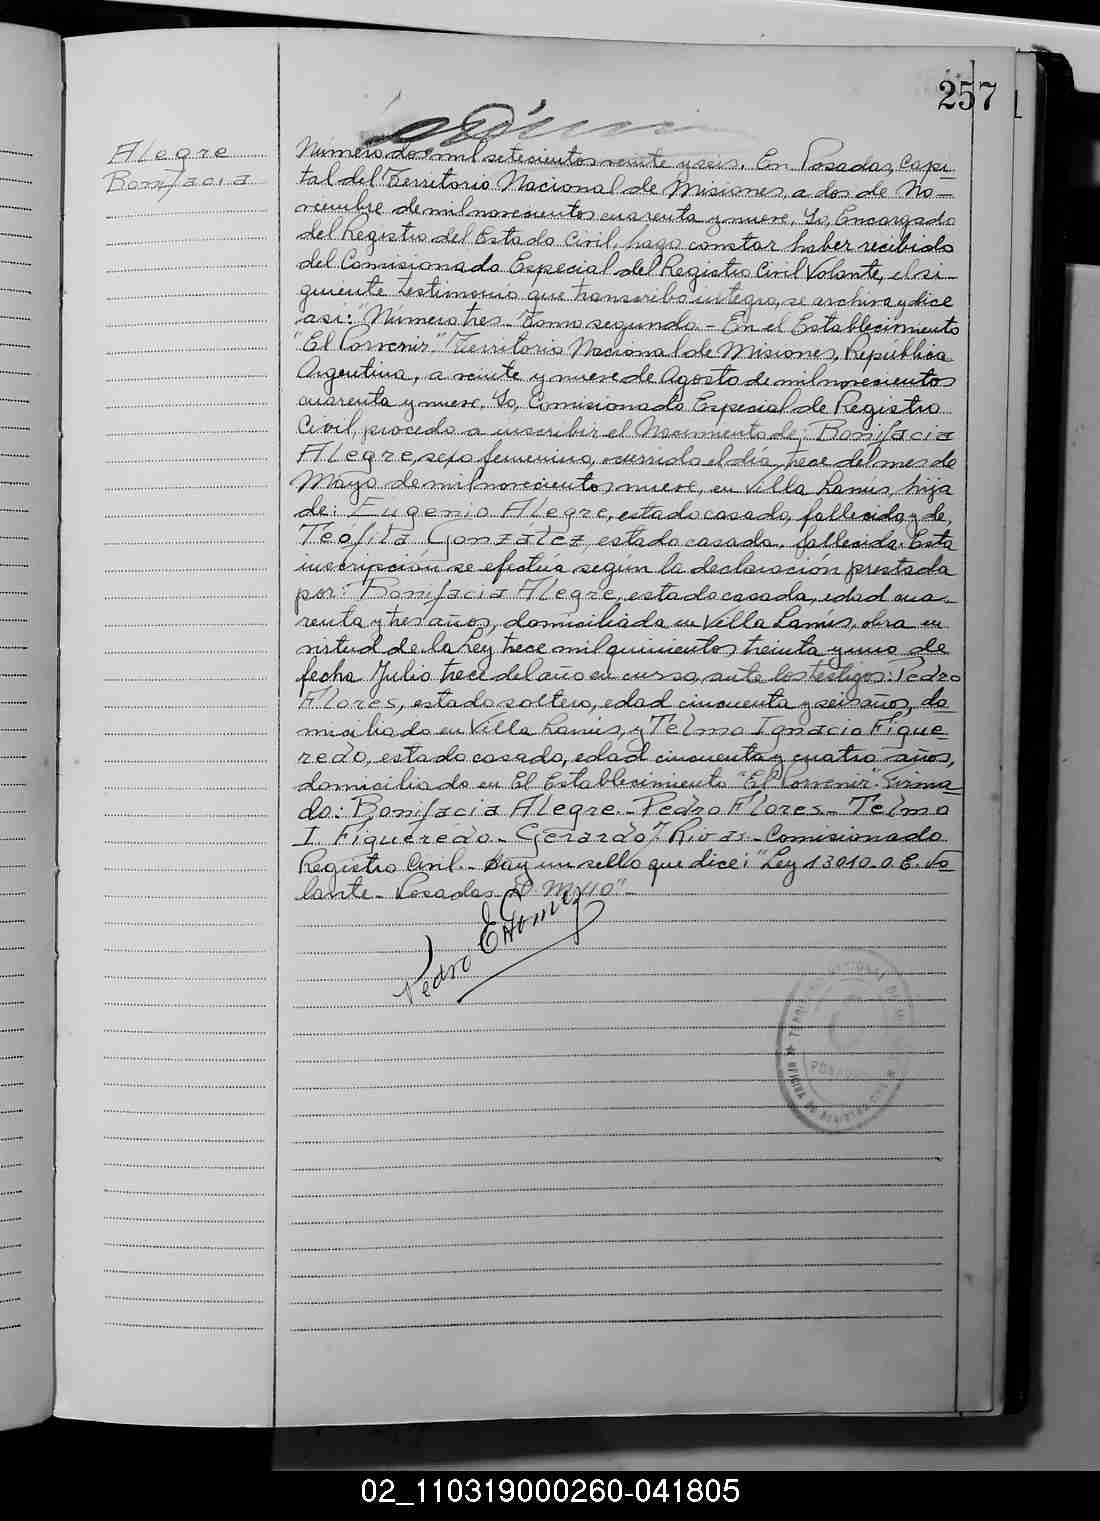 257
Alegre
Bonifacia
Número dos mil setecientos veinte y seis. En Posadas, Capi-
tal del Territorio Nacional de Misiones, a dos de No-
viembre de mil novecientos cuarenta y nueve, Yo, Encargado
del Registro del Estado Civil, hago constar haber recibido
del Comisionado Especial del Registro Civil Volante, el si-
guiente testimonio que transcribo integro, se archiva y dice
asi: "Número tres - Tomo segundo - En el Establecimiento
"El Porvenir." Territorio Nacional de Misiones, República
Argentina, a veinte y nueve de Agosto de mil novecientos
cuarenta y nueve, Yo, Comisionado Especial de Registro
Civil, procedo a inscribir el Nacimiento de: Bonifacia
Alegre, sexo femenino, ocurrido el día trece del mes de
Mayo de mil novecientos nueve, en Villa Lanús, hija
de: Eugenio Alegre, estado casado, fallecido y de,
Teófila Gonzalez, estado casada, fallecida. Esta
inscripción se efectúa segun la declaración prestada
por: Bonifacia Alegre, estado casada, edad cua-
renta y tres años, domiciliada en Villa Lanús, obra en
virtud de la Ley trece mil quinientos treinta y uno de
fecha Julio trece del año en curso, ante los testigos: Pedro
Flores, estado soltero, edad cincuenta y seis años, do-
miciliado en Villa Lanús, y Telmo Ignacio Figue-
redo, estado casado, edad cincuenta y cuatro años,
domiciliado en El Establecimiento "El Porvenir". Firma-
do: Bonifacia Alegre. - Pedro Flores - Telmo
I. Figueredo - Gerardo Rivas - Comisionado
Registro Civil. - Hay un sello que dice: "Ley 13010 - O. E. Vo-
lante - Posadas
Pedro E. Gomez
POSADAS
OFICINA DE REGISTRO CIVIL
02_110319000260-041805